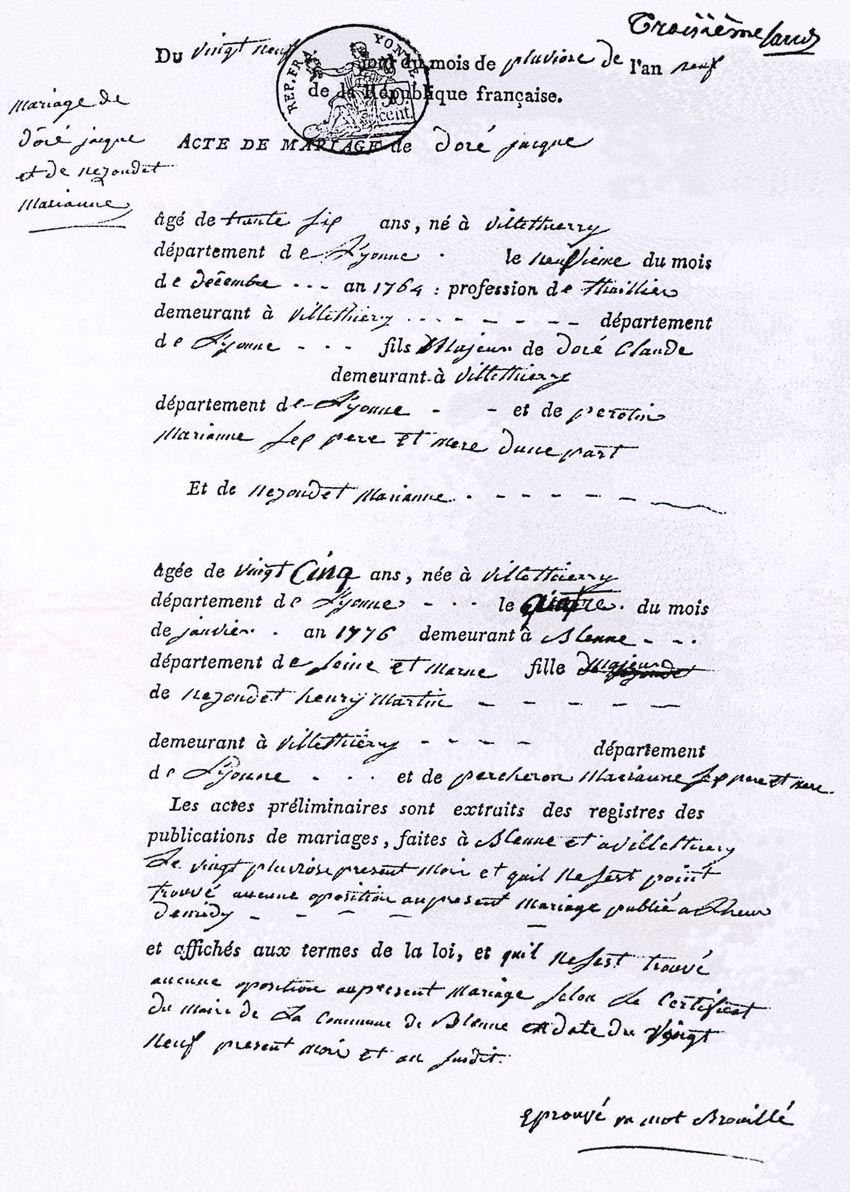 Troisième
Du vingt neuf jour du mois de pluviose de l'an neuf
REP. FRA. YONNE.
50 cent.
de la République française.
Mariage de
doré jacque
et de nezondet
Marianne
ACTE DE MARIAGE de doré jacque
âgé de trente six ans, né à villethierry
département de L'yonne le neufvième du mois
de décembre --- an 1764 : profession de thaillier
demeurant à villethierry ------- département
de L'yonne --- fils Majeur de doré Claude
demeurant à villethierry
département de L'yonne - - et de perotin
Marianne ses pere et mere dune part
Et de nezondet Marianne
âgée de vingt Cinq ans, née à villethierry
département de L'yonne le quatre du mois
de janvier an 1776 demeurant à Blenne
département de Seine et Marne fille
de nezondet henry Martin
demeurant à villethierry ---- département
de L'yonne et de percheron Marianne ses pere et mere.
Les actes préliminaires sont extraits des registres des
publications de mariages, faites à Blenne et a villethierry
Le vingt pluviose present mois et quil ne sest point
trouvé aucune oposition au present Mariage publié a Lheur
de midy
et affichés aux termes de la loi, et quil ne sest trouvé
aucune oposition au present Mariage selon Le Certificat
du Maire de La Commune de Blenne en date du vingt
neuf present mois et an susdit.
Eprouvé un mot Brouillé